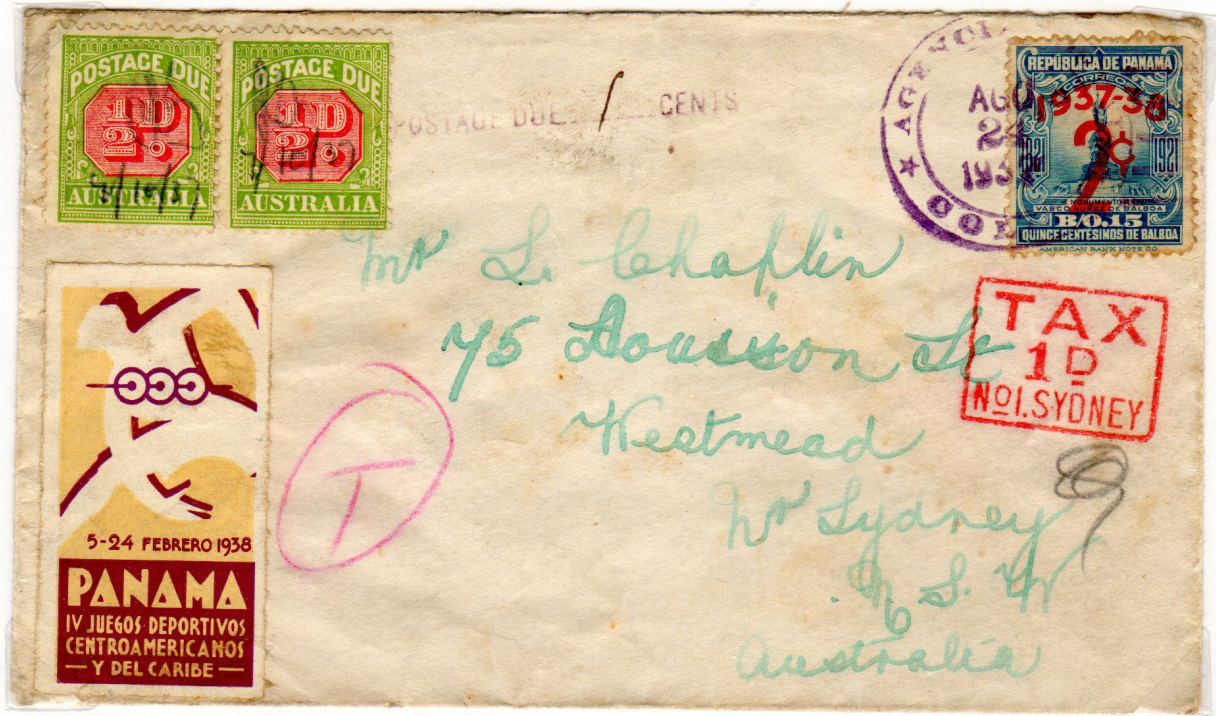 POSTAGE DUE
½D.
AUSTRALIA
POSTAGE DUE
½D.
AUSTRALIA
POSTAGE DUE 1 CENTS
AGO
24
193
REPÚBLICA DE PANAMÁ
CORREO
1937-38
2¢
1921
MONUMENTO
VASCO NUÑEZ DE BALBOA
B/0.15
QUINCE CENTESIMOS DE BALBOA
AMERICAN BANK NOTE CO.
Mr L. Chaplin
75 St
Westmead
Nr Sydney
N.S.W
Australia
TAX
1D
No1.SYDNEY
T
5-24 FEBRERO 1938
PANAMA
IV JUEGOS DEPORTIVOS
CENTROAMERICANOS
— Y DEL CARIBE —